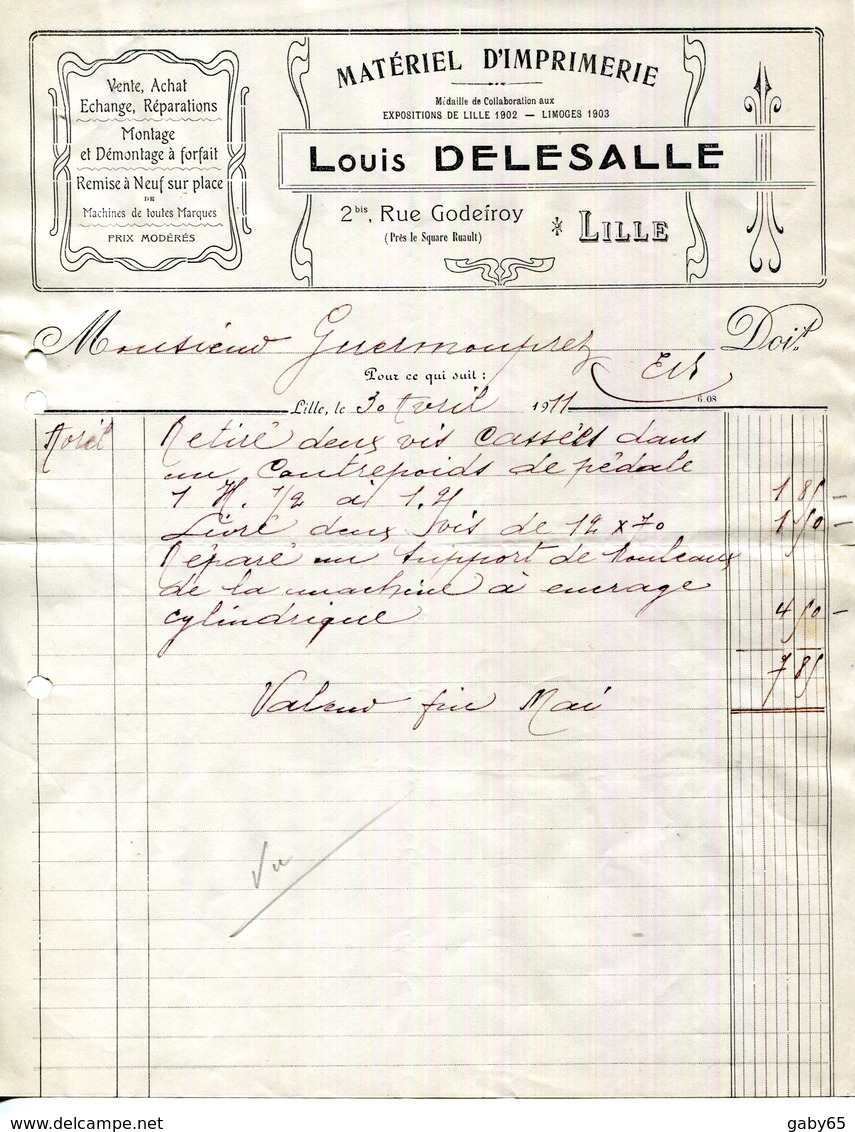 Vente, Achat
Echange, Réparations
Montage
et Démontage à forfait
Remise à Neuf sur place
DE
Machines de toutes Marques
PRIX MODÉRÉS
MATÉRIEL D'IMPRIMERIE
Médaille de Collaboration aux
EXPOSITIONS DE LILLE 1902 — LIMOGES 1903
Louis DELESALLE
2bis, Rue Godefroy
(Près le Square Ruault)
LILLE
Monsieur Guermonprez Doit
Pour ce qui suit :
Lille, le 30 Avril 1911
6.08
Avril Retiré deux vis Cassées dans
un Contrepoids de pédale
1 H. 1/2 à 1.25 1 85
Livré deux vis de 12 x 70 1 50
Réparé un Support de Rouleaux
de la machine à encrage
cylindrique 4 50
7 85
Valeur fin Mai
Vu
www.delcampe.net
gaby65